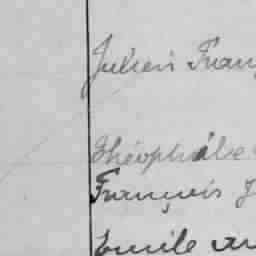 Julien Fran
Théophile
François J
Emile au